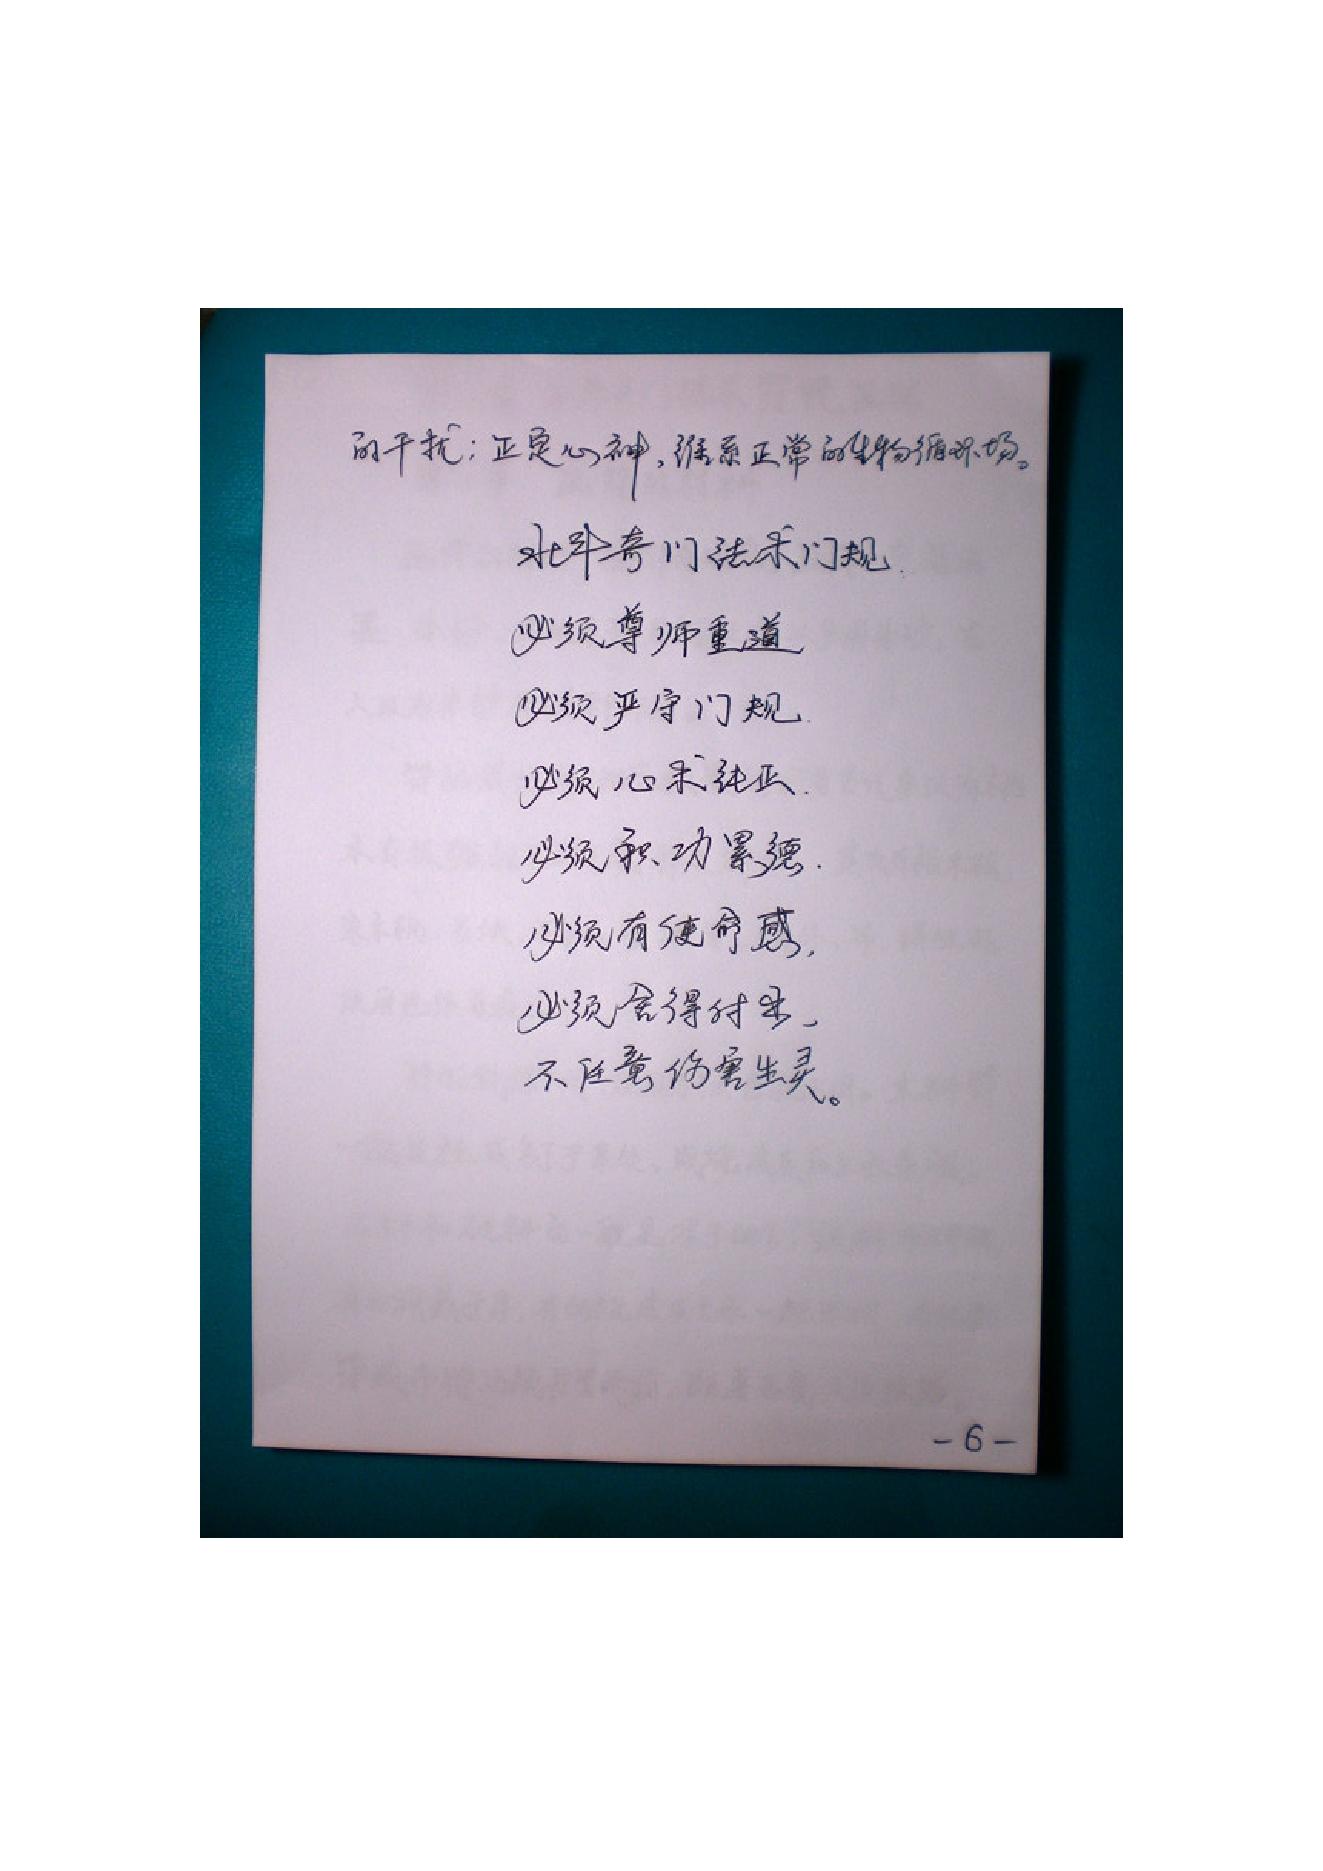 的干扰；正定心神，维系正常的生物循环场。
北斗奇门法术门规.
必须尊师重道
必须严守门规.
必须心术纯正.
必须积功累德.
必须有使命感,
必须舍得付出,
不任意伤害生灵。
-6-